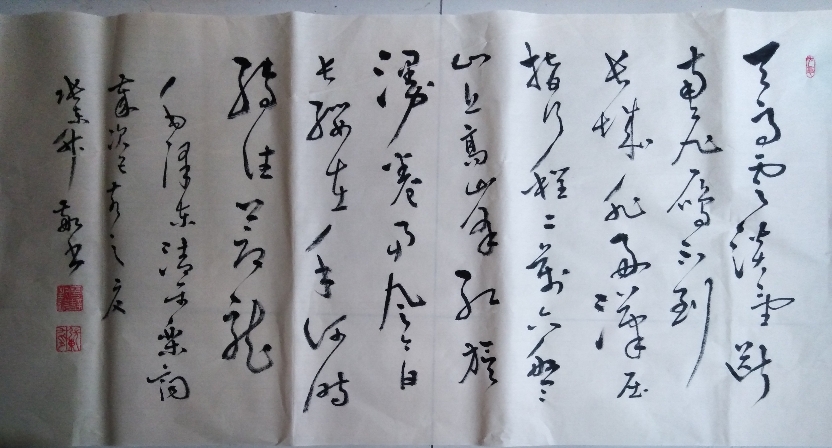 天高云淡望断
南飞雁不到
长城非好汉屈
指行程二万六盘
山上高峰红旗
漫卷西风今日
长缨在手何时
缚住苍龙
毛泽东清平乐词
岁次己亥之
敬书